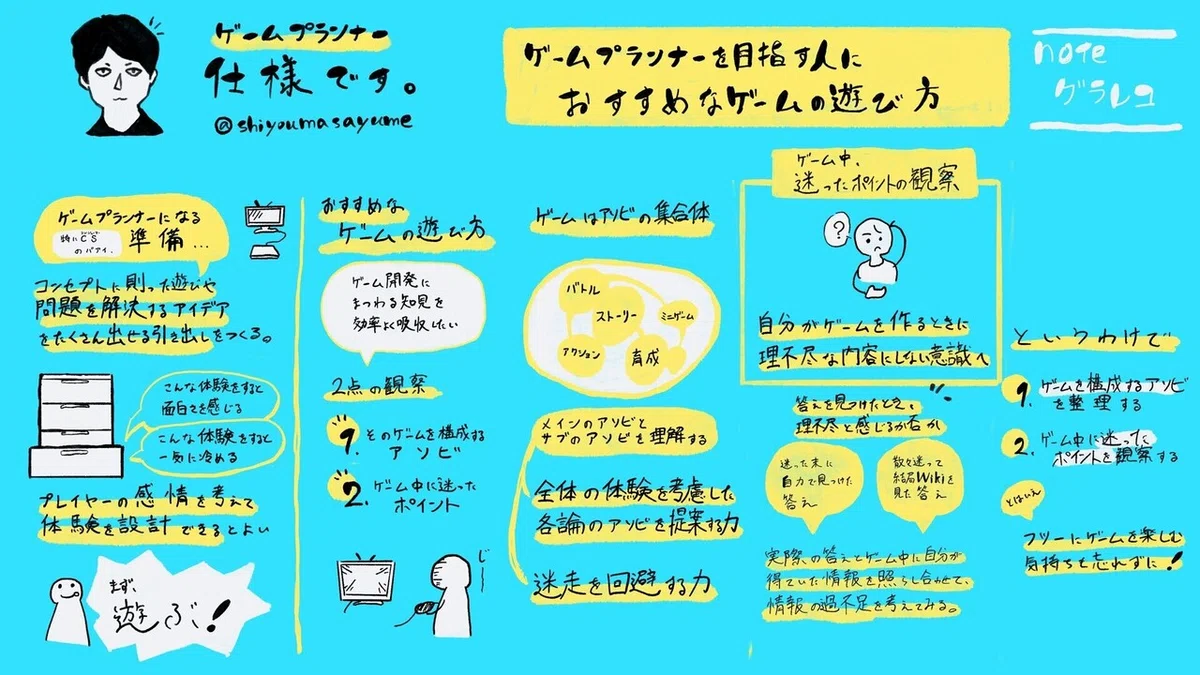 ゲームプランナー
仕様です。
@shiyoumasayume
ゲームプランナーを目指す人に
おすすめなゲームの遊び方
note
グラレコ
ゲームプランナーになる
特にCS
のバアイ、
準備…
コンセプトに則った遊びや
問題を解決するアイデア
をたくさん出せる引き出しをつくる。
こんな体験をすると
面白さを感じる
こんな体験をすると
一気に冷める
プレイヤーの感情を考えて
体験を設計できるとよい
まず、
遊ぶ!
おすすめな
ゲームの遊び方
ゲーム開発に
まつわる知見を
効率よく吸収したい
2点の観察
1. そのゲームを構成する
アソビ
2. ゲーム中に迷った
ポイント
じー
ゲームはアソビの集合体
バトル
ストーリー
ミニゲーム
アクション
育成
メインのアソビと
サブのアソビを理解する
全体の体験を考慮した
各論のアソビを提案する力
迷走を回避する力
ゲーム中、
迷ったポイントの観察
?
自分がゲームを作るときに
理不尽な内容にしない意識へ
答えを見つけたとき、
理不尽と感じるか否か
迷った末に
自力で見つけた
答え
散々迷って
結局Wikiを
見た答え
実際の答えとゲーム中に自分が
得ていた情報を照らし合わせて、
情報の過不足を考えてみる。
というわけで
1. ゲームを構成するアソビ
を整理する
2. ゲーム中に迷った
ポイントを観察する
とはいえ
フツーにゲームを楽しむ
気持ちも忘れずに!